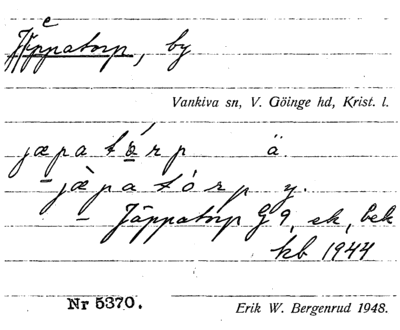 Jäppatorp, by
Vankiva sn, V. Göinge hd, Krist. l.
jæpatǻrp ä.
– jæ̀patórp y.
– Jäppatorp G 9, ek, bek
kb 1944
Nr 5370.
Erik W. Bergenrud 1948.